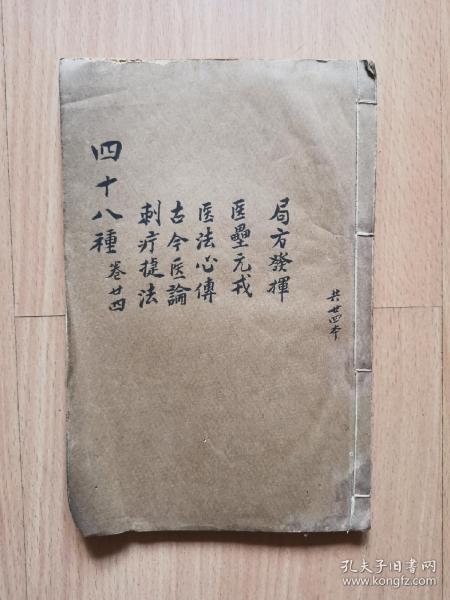 共廿四本
局方發揮
医壘元戎
医法心傳
古今医論
刺疔捷法
四十八種 卷廿四
孔夫子旧书网
www.kongfz.com